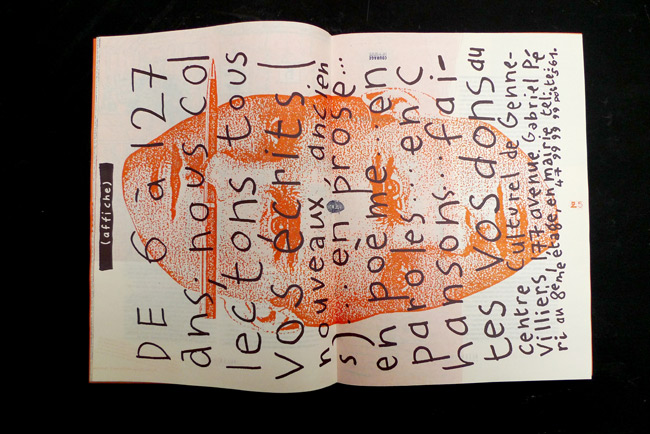 (affiche)
DE 6 à 127
ans, nous col
lectons tous
vos écrits (
nouveaux ancien
s)... en prose...
en poème.. en
paroles.. en c
hansons.. fai-
tes vos dons au
centre culturel de Genne-
villiers, 177 avenue Gabriel Pé
ri au 8eme étage, en mairie
47 99 99 99 poste 561.